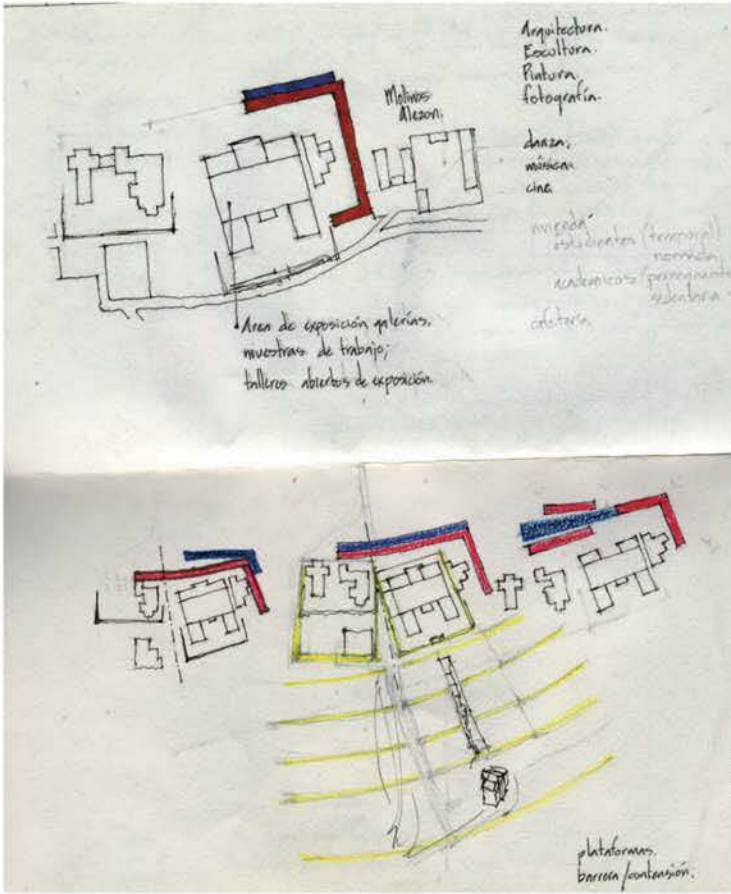 Arquitectura.
Escultura.
Pintura.
fotografía.
Molinos
danza,
música
cine
vivienda
estudiantes (temporal)
académicos
cafetería
Area de exposición galerías,
muestras de trabajo;
talleres abiertos de exposición
plataformas.
barrera/contensión.